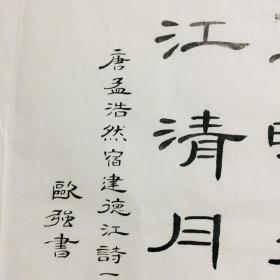 江清月
唐孟浩然宿建德江詩一
歐強書